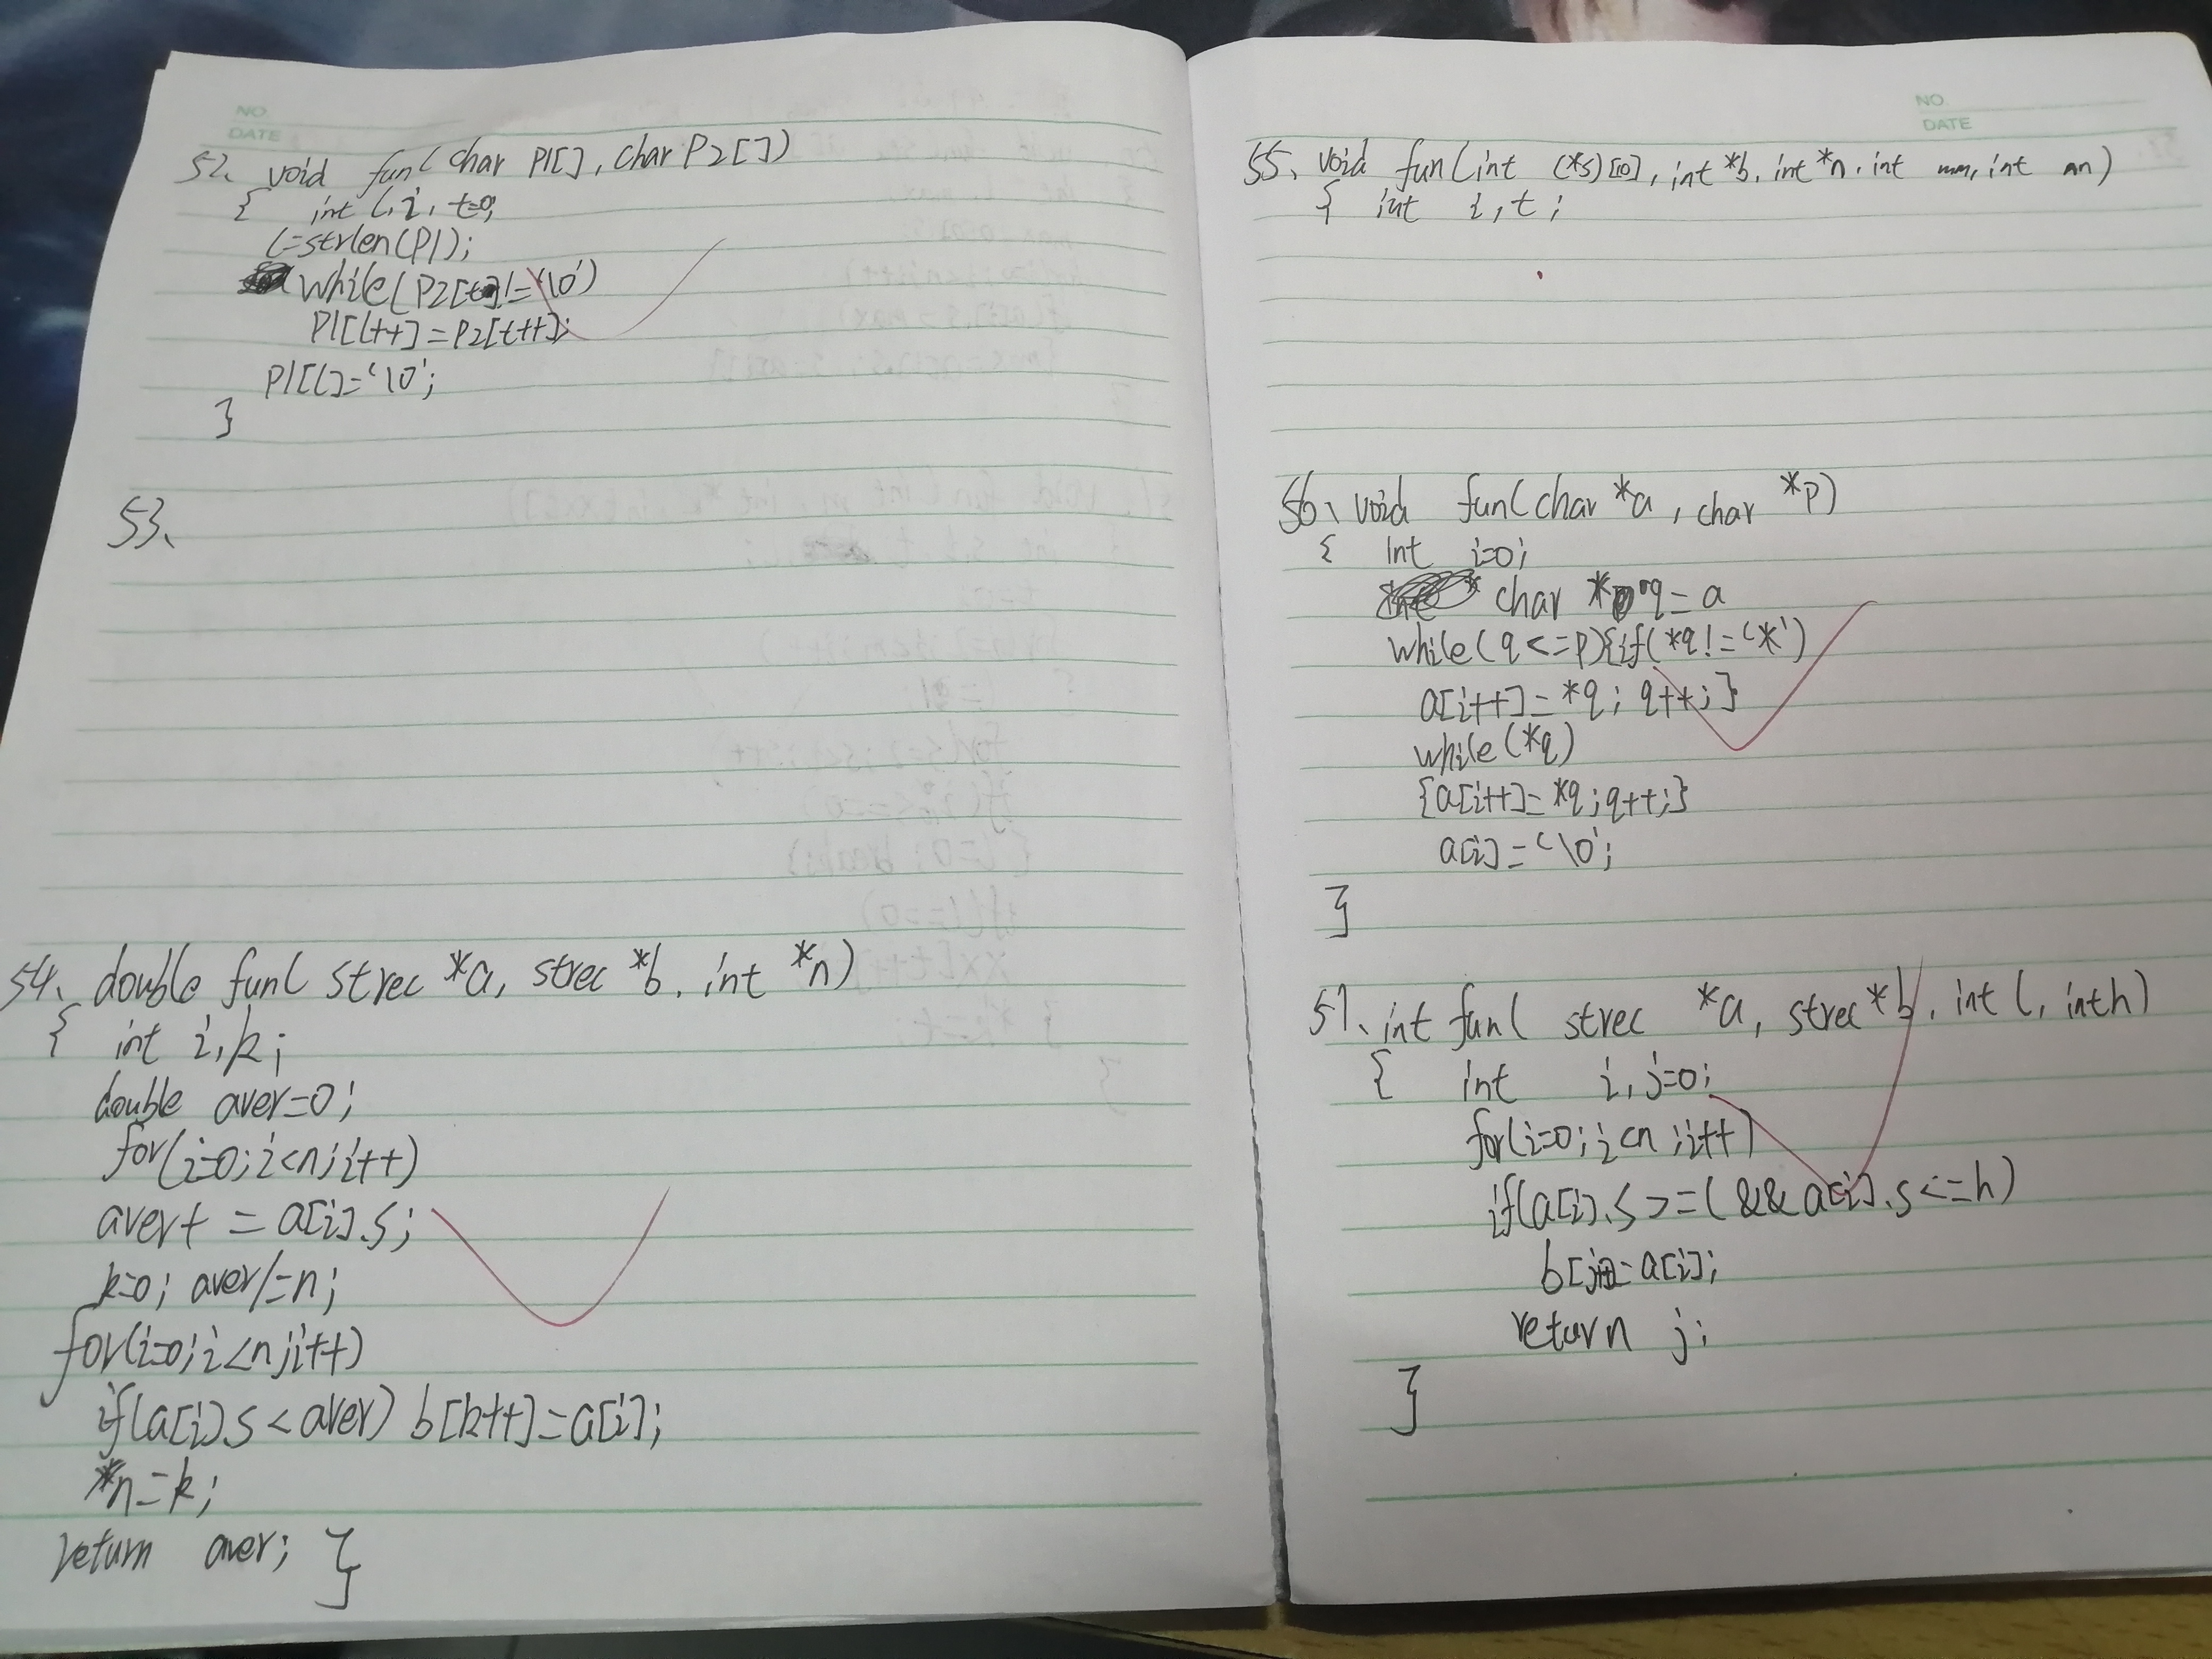 NO.
DATE
52、void fun(char P1[],char P2[])
{ int l,i,t=0;
l=strlen(P1);
while(P2[t]!='\0')
P1[l++]=P2[t++];
P1[l]='\0';
}
53、
54、double fun( strec *a, strec *b, int *n)
{ int i,k;
double aver=0;
for(i=0;i<n;i++)
aver+ = a[i].s;
k=0; aver/=n;
for(i=0;i<n;i++)
if(a[i].s<aver) b[k++]=a[i];
*n=k;
return aver; }
NO
DATE
55、void fun(int (*s)[10], int *b, int *n, int mm, int nn)
{ int i,t;
56、void fun(char *a, char *p)
{ int i=0;
char *q=a
while(q<=p){if(*q!='*')
a[i++]=*q; q++;}
while(*q)
{a[i++]=*q;q++;}
a[i]='\0';
}
57、int fun( strec *a, strec*b, int l, int h)
{ int i,j=0;
for(i=0;i<n;i++)
if(a[i].s>=l &&a[i].s<=h)
b[j++]=a[i];
return j;
}